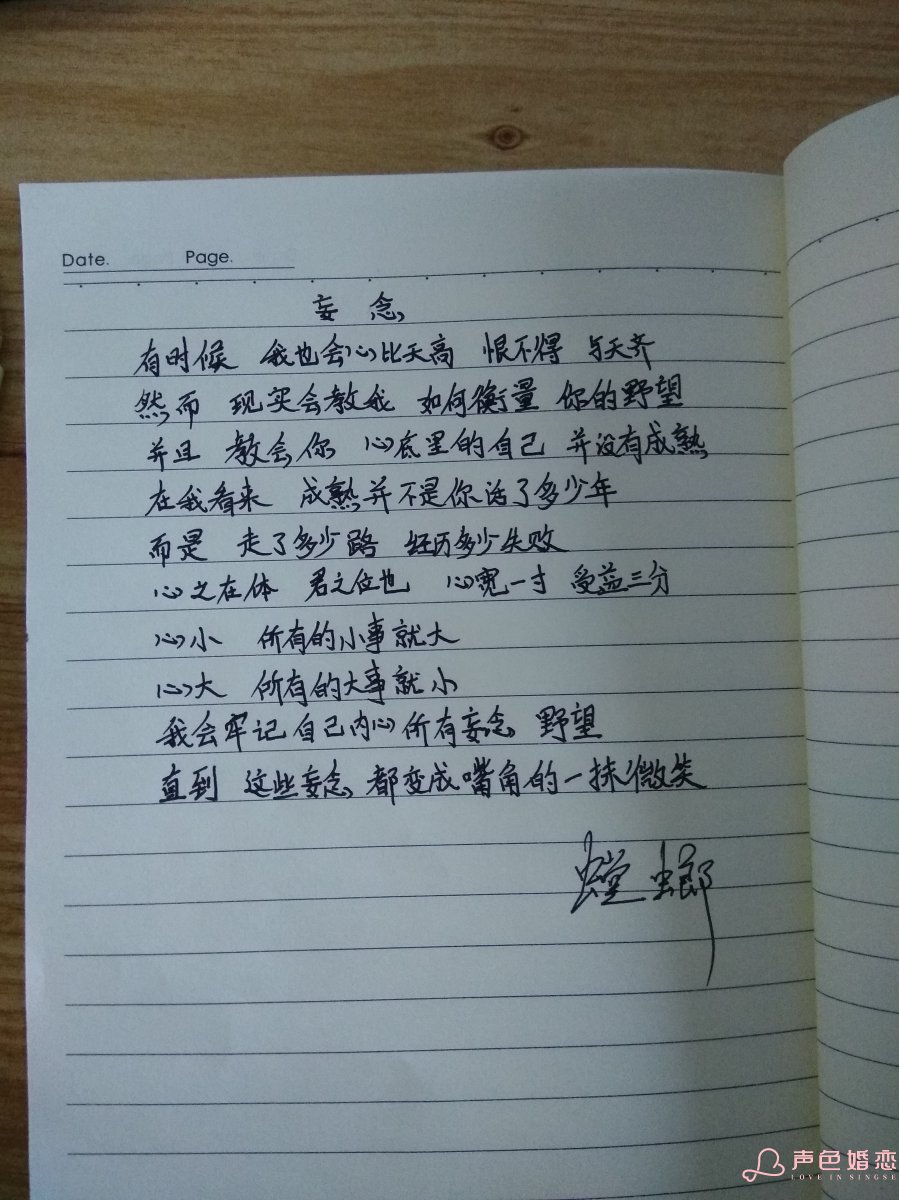 Date. Page.
妄 念
有时候 我也会心比天高 恨不得 与天齐
然而 现实会教我 如何衡量 你的野望
并且 教会你 心底里的自己 并没有成熟
在我看来 成熟并不是你活了多少年
而是 走了多少路 经历多少失败
心之在体 君之位也 心宽一寸 受益三分
心小 所有的小事就大
心大 所有的大事就小
我会牢记自己内心所有妄念 野望
直到 这些妄念 都变成嘴角的一抹微笑
螳螂
声色婚恋
LOVE IN SINGSE